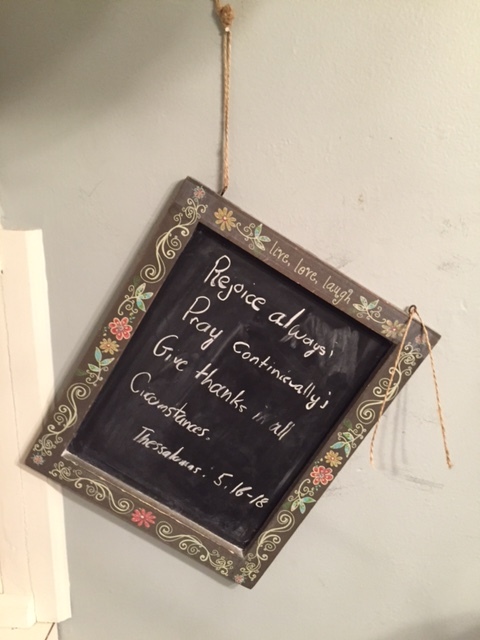 live, love, laugh
Rejoice always;
Pray Continually;
Give thanks in all
Circumstances.
Thessalonians: 5, 16-18